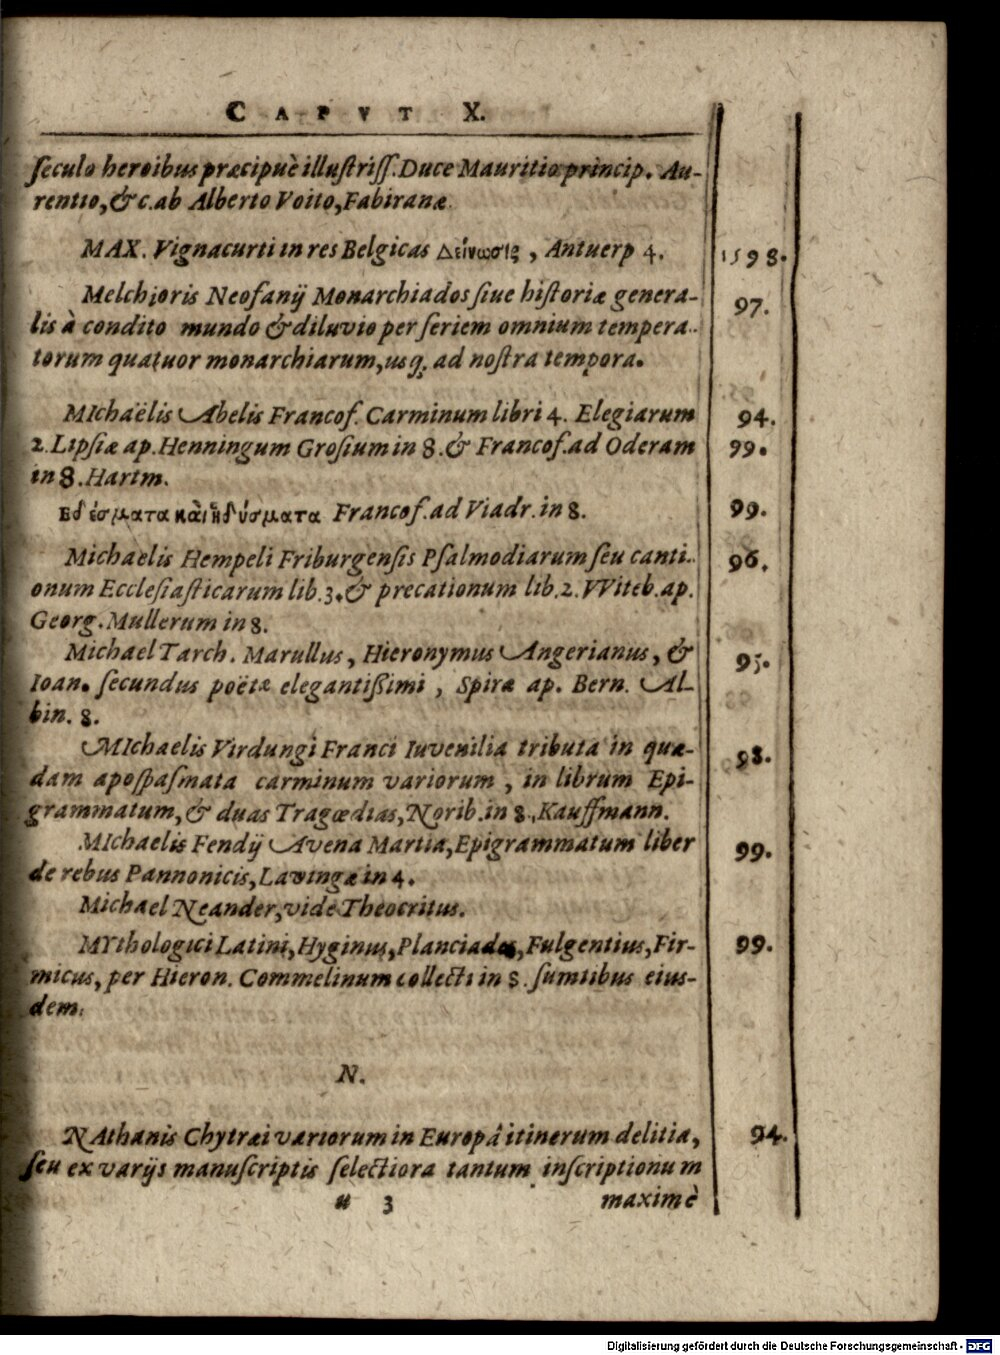 CAPVT X.
ſeculo heroibus præcipuè illuſtriſſ. Duce Mauritio princip. Au-
rentio, &c. ab Alberto Voito, Fabiranæ.
MAX. Vignacurti in res Belgicas Δείνωσις, Antuerp 4. 1598.
Melchioris Neofanij Monarchiados ſiue hiſtoriæ genera- 97.
lis à condito mundo & diluvio per ſeriem omnium tempera-
torum quatuor monarchiarum, usq; ad noſtra tempora.
MIchaëlis Abelis Francof. Carminum libri 4. Elegiarum 94.
2. Lipſiæ ap. Henningum Groſium in 8. & Francof. ad Oderam 99.
in 8. Hartm.
Εδέσματα καὶ ἡδύσματα Francof. ad Viadr. in 8. 99.
Michaelis Hempeli Friburgenſis Pſalmodiarum ſeu canti- 96.
onum Eccleſiaſticarum lib. 3. & precationum lib. 2. VViteb. ap.
Georg. Mullerum in 8.
Michael Tarch. Marullus, Hieronymus Angerianus, & 95.
Ioan. ſecundus poëtæ elegantißimi, Spiræ ap. Bern. Al-
bin. 8.
MIchaelis Virdungi Franci Iuvenilia tributa in quæ- 98.
dam apoſpaſmata carminum variorum, in librum Epi-
grammatum, & duas Tragœdias, Norib. in 8., Kauffmann.
MIchaelis Fendij Avena Martia, Epigrammatum liber 99.
de rebus Pannonicis, Lawingæ in 4.
Michael Neander, vide Theocritus.
MYthologici Latini, Hyginus, Planciades, Fulgentius, Fir- 99.
micus, per Hieron. Commelinum collecti in 8. ſumtibus eius-
dem.
N.
NAthanis Chytræi variorum in Europâ itinerum delitiæ, 94.
ſeu ex varijs manuſcriptis ſelectiora tantum inſcriptionum
u 3 maximè
Digitalisierung gefördert durch die Deutsche Forschungsgemeinschaft - DFG